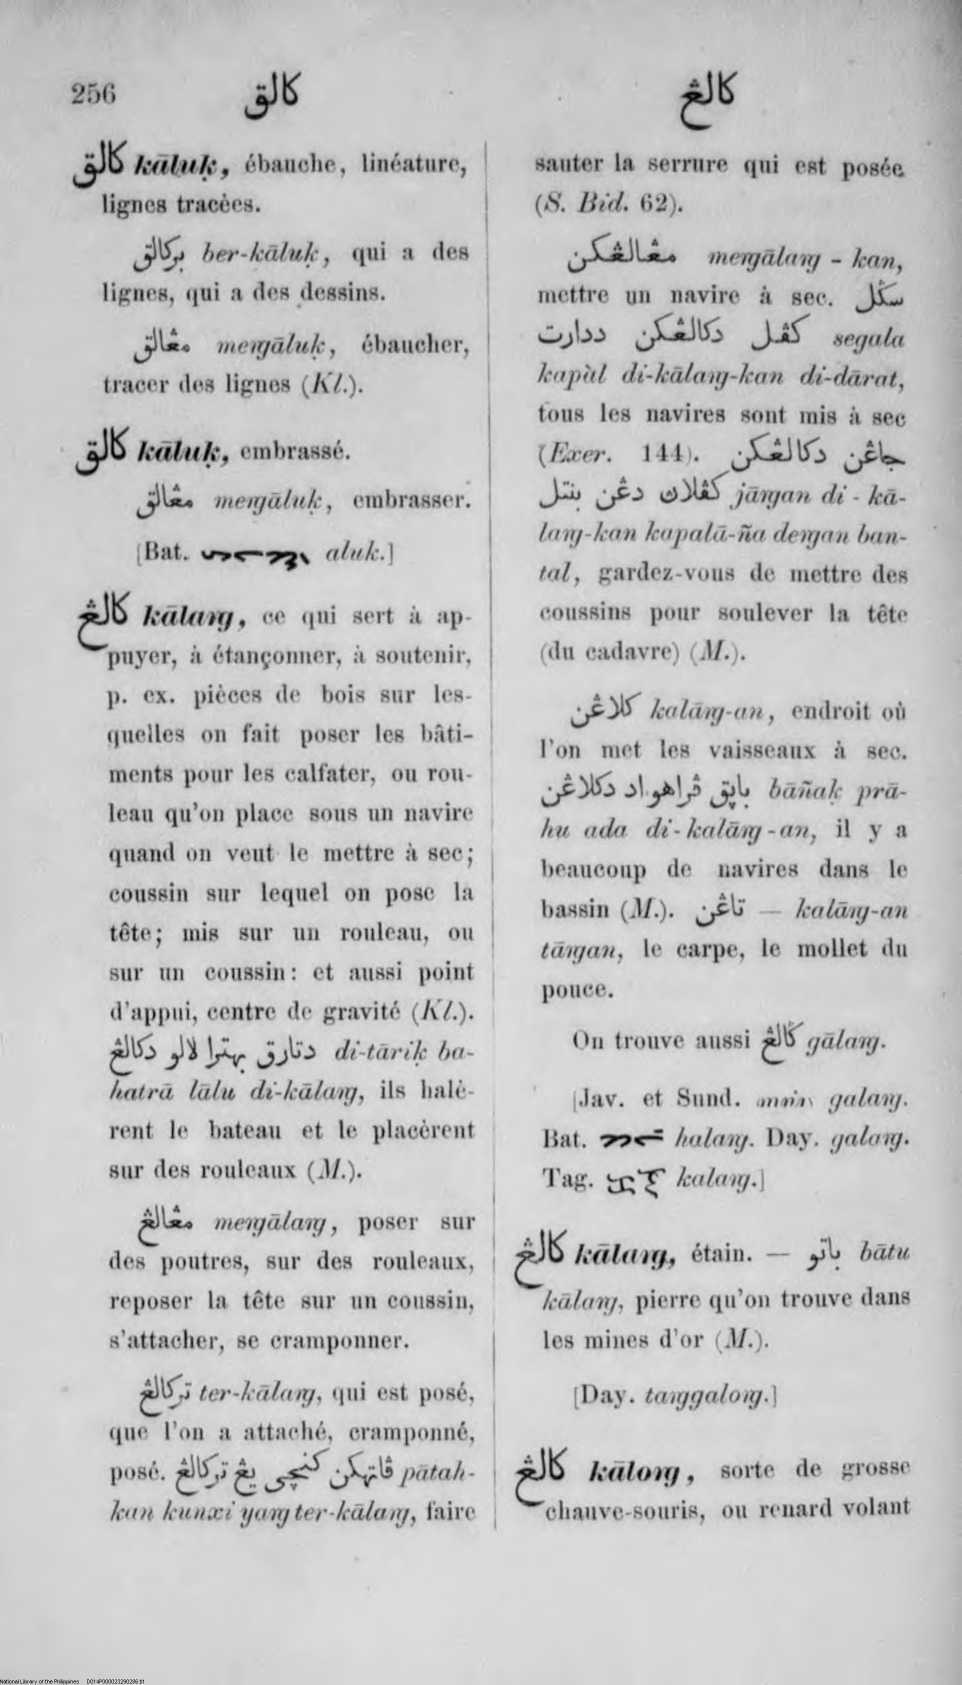 256 كالق كالڠ
كالق kāluḳ, ébauche, linéature,
lignes tracées.
بركالق ber-kāluḳ, qui a des
lignes, qui a des dessins.
مڠالق meṅgāluḳ, ébaucher,
tracer des lignes (Kl.).
كالق kāluḳ, embrassé.
مڠالق meṅgāluḳ, embrasser.
[Bat. aluk.]
كالڠ kālaṅg, ce qui sert à ap-
puyer, à étançonner, à soutenir,
p. ex. pièces de bois sur les-
quelles on fait poser les bâti-
ments pour les calfater, ou rou-
leau qu'on place sous un navire
quand on veut le mettre à sec;
coussin sur lequel on pose la
tête; mis sur un rouleau, ou
sur un coussin: et aussi point
d'appui, centre de gravité (Kl.).
دتارق بهترا لالو دكالڠ di-tāriḳ ba-
hatrā lālu di-kālaṅg, ils halè-
rent le bateau et le placèrent
sur des rouleaux (M.).
مڠالڠ meṅgālaṅg, poser sur
des poutres, sur des rouleaux,
reposer la tête sur un coussin,
s'attacher, se cramponner.
تركالڠ ter-kālaṅg, qui est posé,
que l'on a attaché, cramponné,
posé. ڤاتهكن كنچي يڠ تركالڠ pātah-
kan kunxi yaṅg ter-kālaṅg, faire
sauter la serrure qui est posée
(S. Bid. 62).
مڠالڠكن meṅgālaṅg-kan,
mettre un navire à sec. سكل
كڤل دكالڠكن ددارت segala
kapàl di-kālaṅg-kan di-dārat,
tous les navires sont mis à sec
(Exer. 144). جاڠن دكالڠكن
كڤلاڽ دڠن بنتل jāṅgan di-kā-
laṅg-kan kapalā-ña deṅgan ban-
tal, gardez-vous de mettre des
coussins pour soulever la tête
(du cadavre) (M.).
كلاڠن kalāṅg-an, endroit où
l'on met les vaisseaux à sec.
باڽق ڤراهو اد دكلاڠن bāñaḳ prā-
hu ada di-kalāṅg-an, il y a
beaucoup de navires dans le
bassin (M.). تاڠن — kalāṅg-an
tāṅgan, le carpe, le mollet du
pouce.
On trouve aussi ݢالڠ gālaṅg.
[Jav. et Sund. galaṅg.
Bat. halaṅg. Day. galaṅg.
Tag. kalaṅg.]
كالڠ kālaṅg, étain. — باتو bātu
kālaṅg, pierre qu'on trouve dans
les mines d'or (M.).
[Day. taṅggaloṅg.]
كالڠ kāloṅg, sorte de grosse
chauve-souris, ou renard volant
National Library of the Philippines